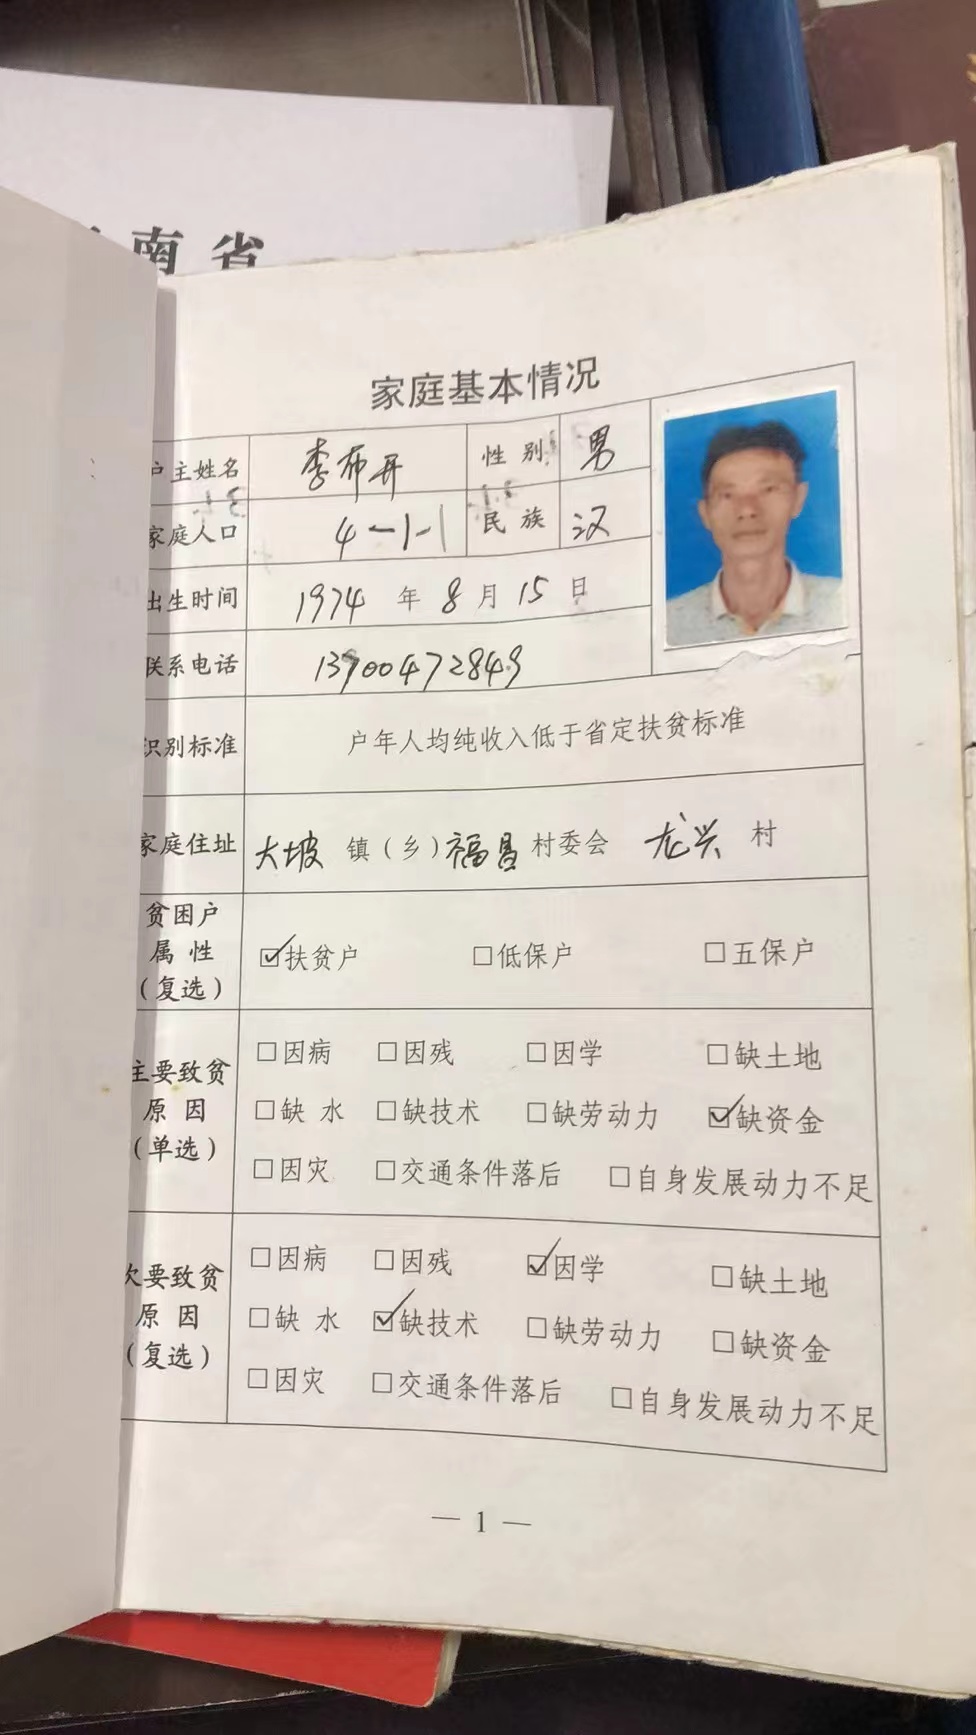 南省
家庭基本情况
户主姓名 李布开 性别 男
家庭人口 4-1-1 民族 汉
出生时间 1974 年 8 月 15 日
联系电话 13900472849
识别标准 户年人均纯收入低于省定扶贫标准
家庭住址 大坡 镇（乡）福昌 村委会 龙兴 村
贫困户
属性
（复选）
☑扶贫户 □低保户 □五保户
主要致贫
原因
（单选）
□因病 □因残 □因学 □缺土地
□缺水 □缺技术 □缺劳动力 ☑缺资金
□因灾 □交通条件落后 □自身发展动力不足
次要致贫
原因
（复选）
□因病 □因残 ☑因学 □缺土地
□缺水 ☑缺技术 □缺劳动力 □缺资金
□因灾 □交通条件落后 □自身发展动力不足
— 1 —